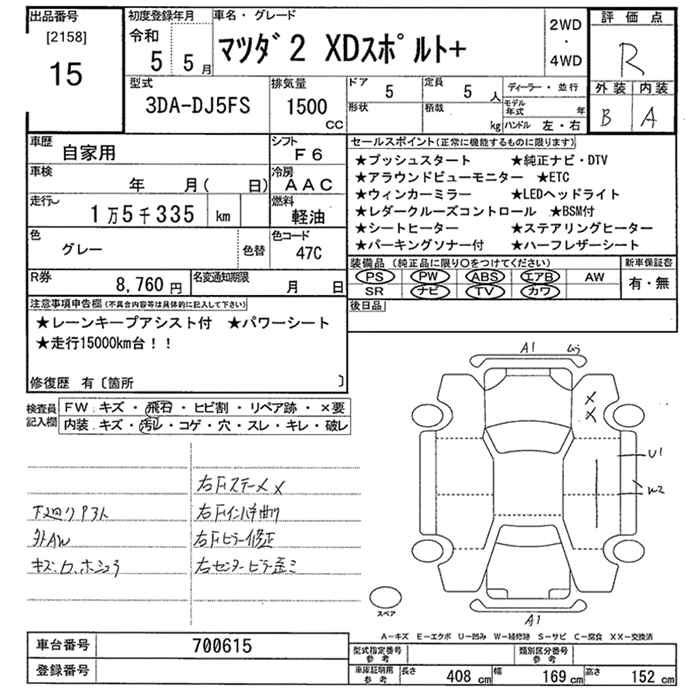 出品番号
[2158]
15
初度登録年月
令和
5 5月
車名・グレード
マツダ2 XDスポルト+
2WD
・
4WD
評価点
R
外装 内装
B A
型式
3DA-DJ5FS
排気量
1500
CC
ドア
5
定員
5人
形状
積載
kg
ディーラー・並行
モデル年式 年
ハンドル 左・右
車歴
自家用
シフト
F6
車検
年 月( 日)
冷房
AAC
走行
1万5千335 km
燃料
軽油
色
グレー
色替
色コード
47C
R券
8,760円
名変通知期限
月 日
セールスポイント(正常に機能するものに限ります)
★プッシュスタート ★純正ナビ・DTV
★アラウンドビューモニター ★ETC
★ウィンカーミラー ★LEDヘッドライト
★レダークルーズコントロール ★BSM付
★シートヒーター ★ステアリングヒーター
★パーキングソナー付 ★ハーフレザーシート
装備品(純正品に限り○をつけてください)
新車保証書
PS PW ABS エアB AW
有・無
SR ナビ TV カワ
後日品
注意事項申告欄(不具合内容等は具体的に記入して下さい)
★レーンキープアシスト付 ★パワーシート
★走行15000km台！！
修復歴 有〔箇所 〕
検査員記入欄
FW.キズ・飛石・ヒビ割・リペア跡・×要
内装.キズ・汚レ・コゲ・穴・スレ・キレ・破レ
右Fステーメ×
下廻りサビ
右Fインパネ曲り
外AW
右Fピラー修正
右センターピラー歪ミ
A1
×
×
U1
W2
A1
スペア
A－キズ E－エクボ U－凹み W－補修跡 S－サビ C－腐食 XX－交換済
車台番号
700615
登録番号
型式指定番号
参考
類別区分番号
参考
車庫証明用
参考
長さ
408 cm
幅
169 cm
高さ
152 cm